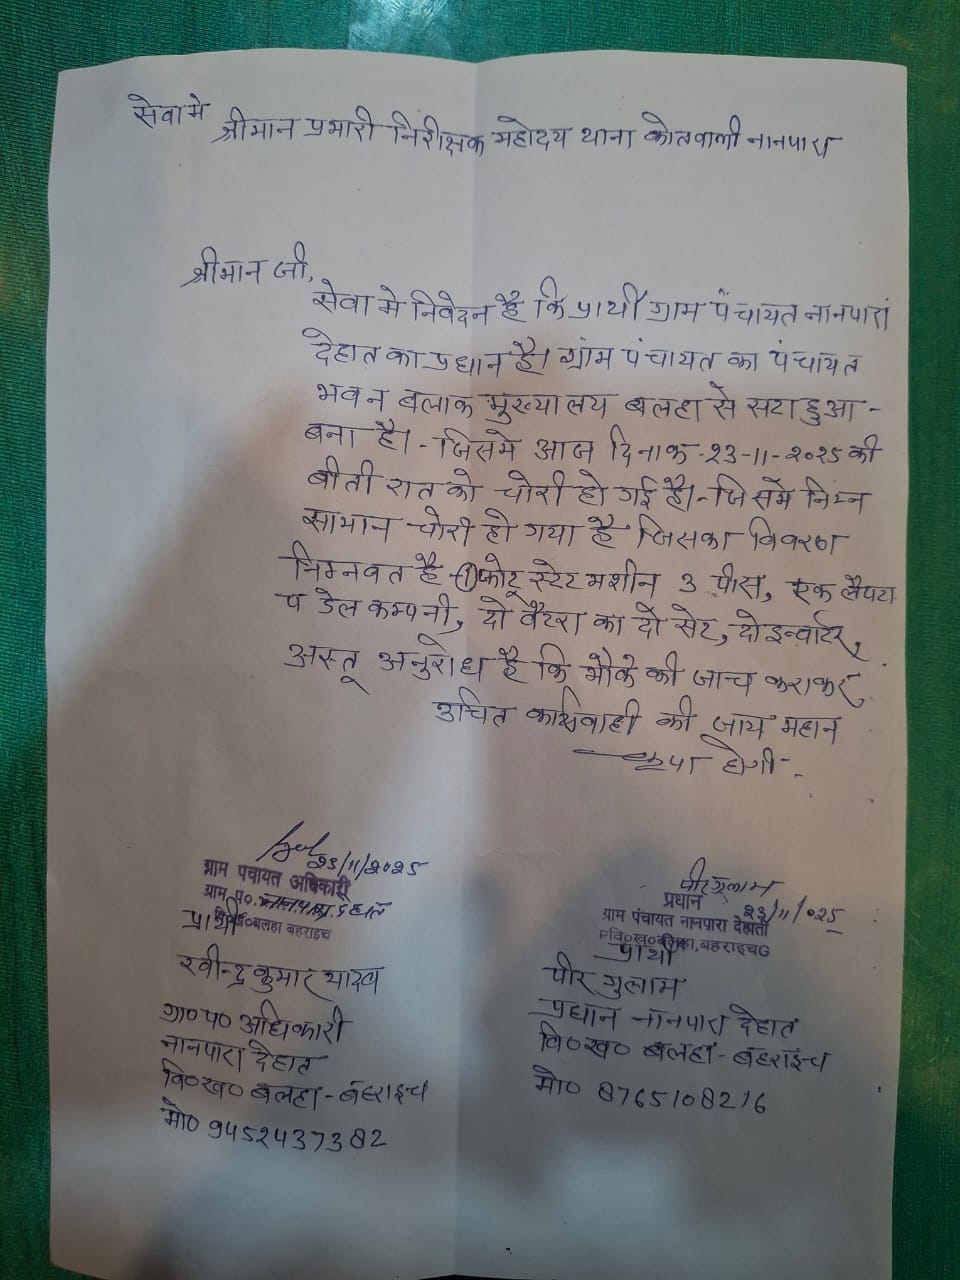 सेवा मे
श्रीमान प्रभारी निरीक्षक महोदय थाना कोतवाली नानपारा
श्रीमान जी,
सेवा मे निवेदन है कि प्रार्थी ग्राम पंचायत नानपारा
देहात का प्रधान है। ग्राम पंचायत का पंचायत
भवन बलाक मुख्यालय बलहा से सटा हुआ -
बना है। - जिसमे आज दिनाक - 23-11-2025 की
बीती रात को चोरी हो गई है। - जिसमे निम्न
सामान चोरी हो गया है जिसका विवरण
निम्नवत है - ① फोटू स्टेट मशीन 3 पीस, एक लैपटा
प डेल कम्पनी, दो बैटरा का दो सेट, दो इन्वार्टर,
अस्तू अनुरोध है कि मौके की जाच कराकर
उचित कार्यवाही की जाय महान
कृपा होगी -
23/11/2025
ग्राम पंचायत अधिकारी
ग्राम पं०. नानपारा देहात
वि०ख०बलहा बहराइच
प्रार्थी
रवीन्द्र कुमार यादव
ग्रा० प० अधिकारी
नानपारा देहात
वि०ख० बलहा - बहराइच
मो० 9452437382
पीर गुलाम
प्रधान 23/11/025
ग्राम पंचायत नानपारा देहाती
वि०ख०बलहा, बहराइच
प्रार्थी
पीर गुलाम
प्रधान नानपारा देहात
वि०ख० बलहा - बहराइच
मो० 8765108216